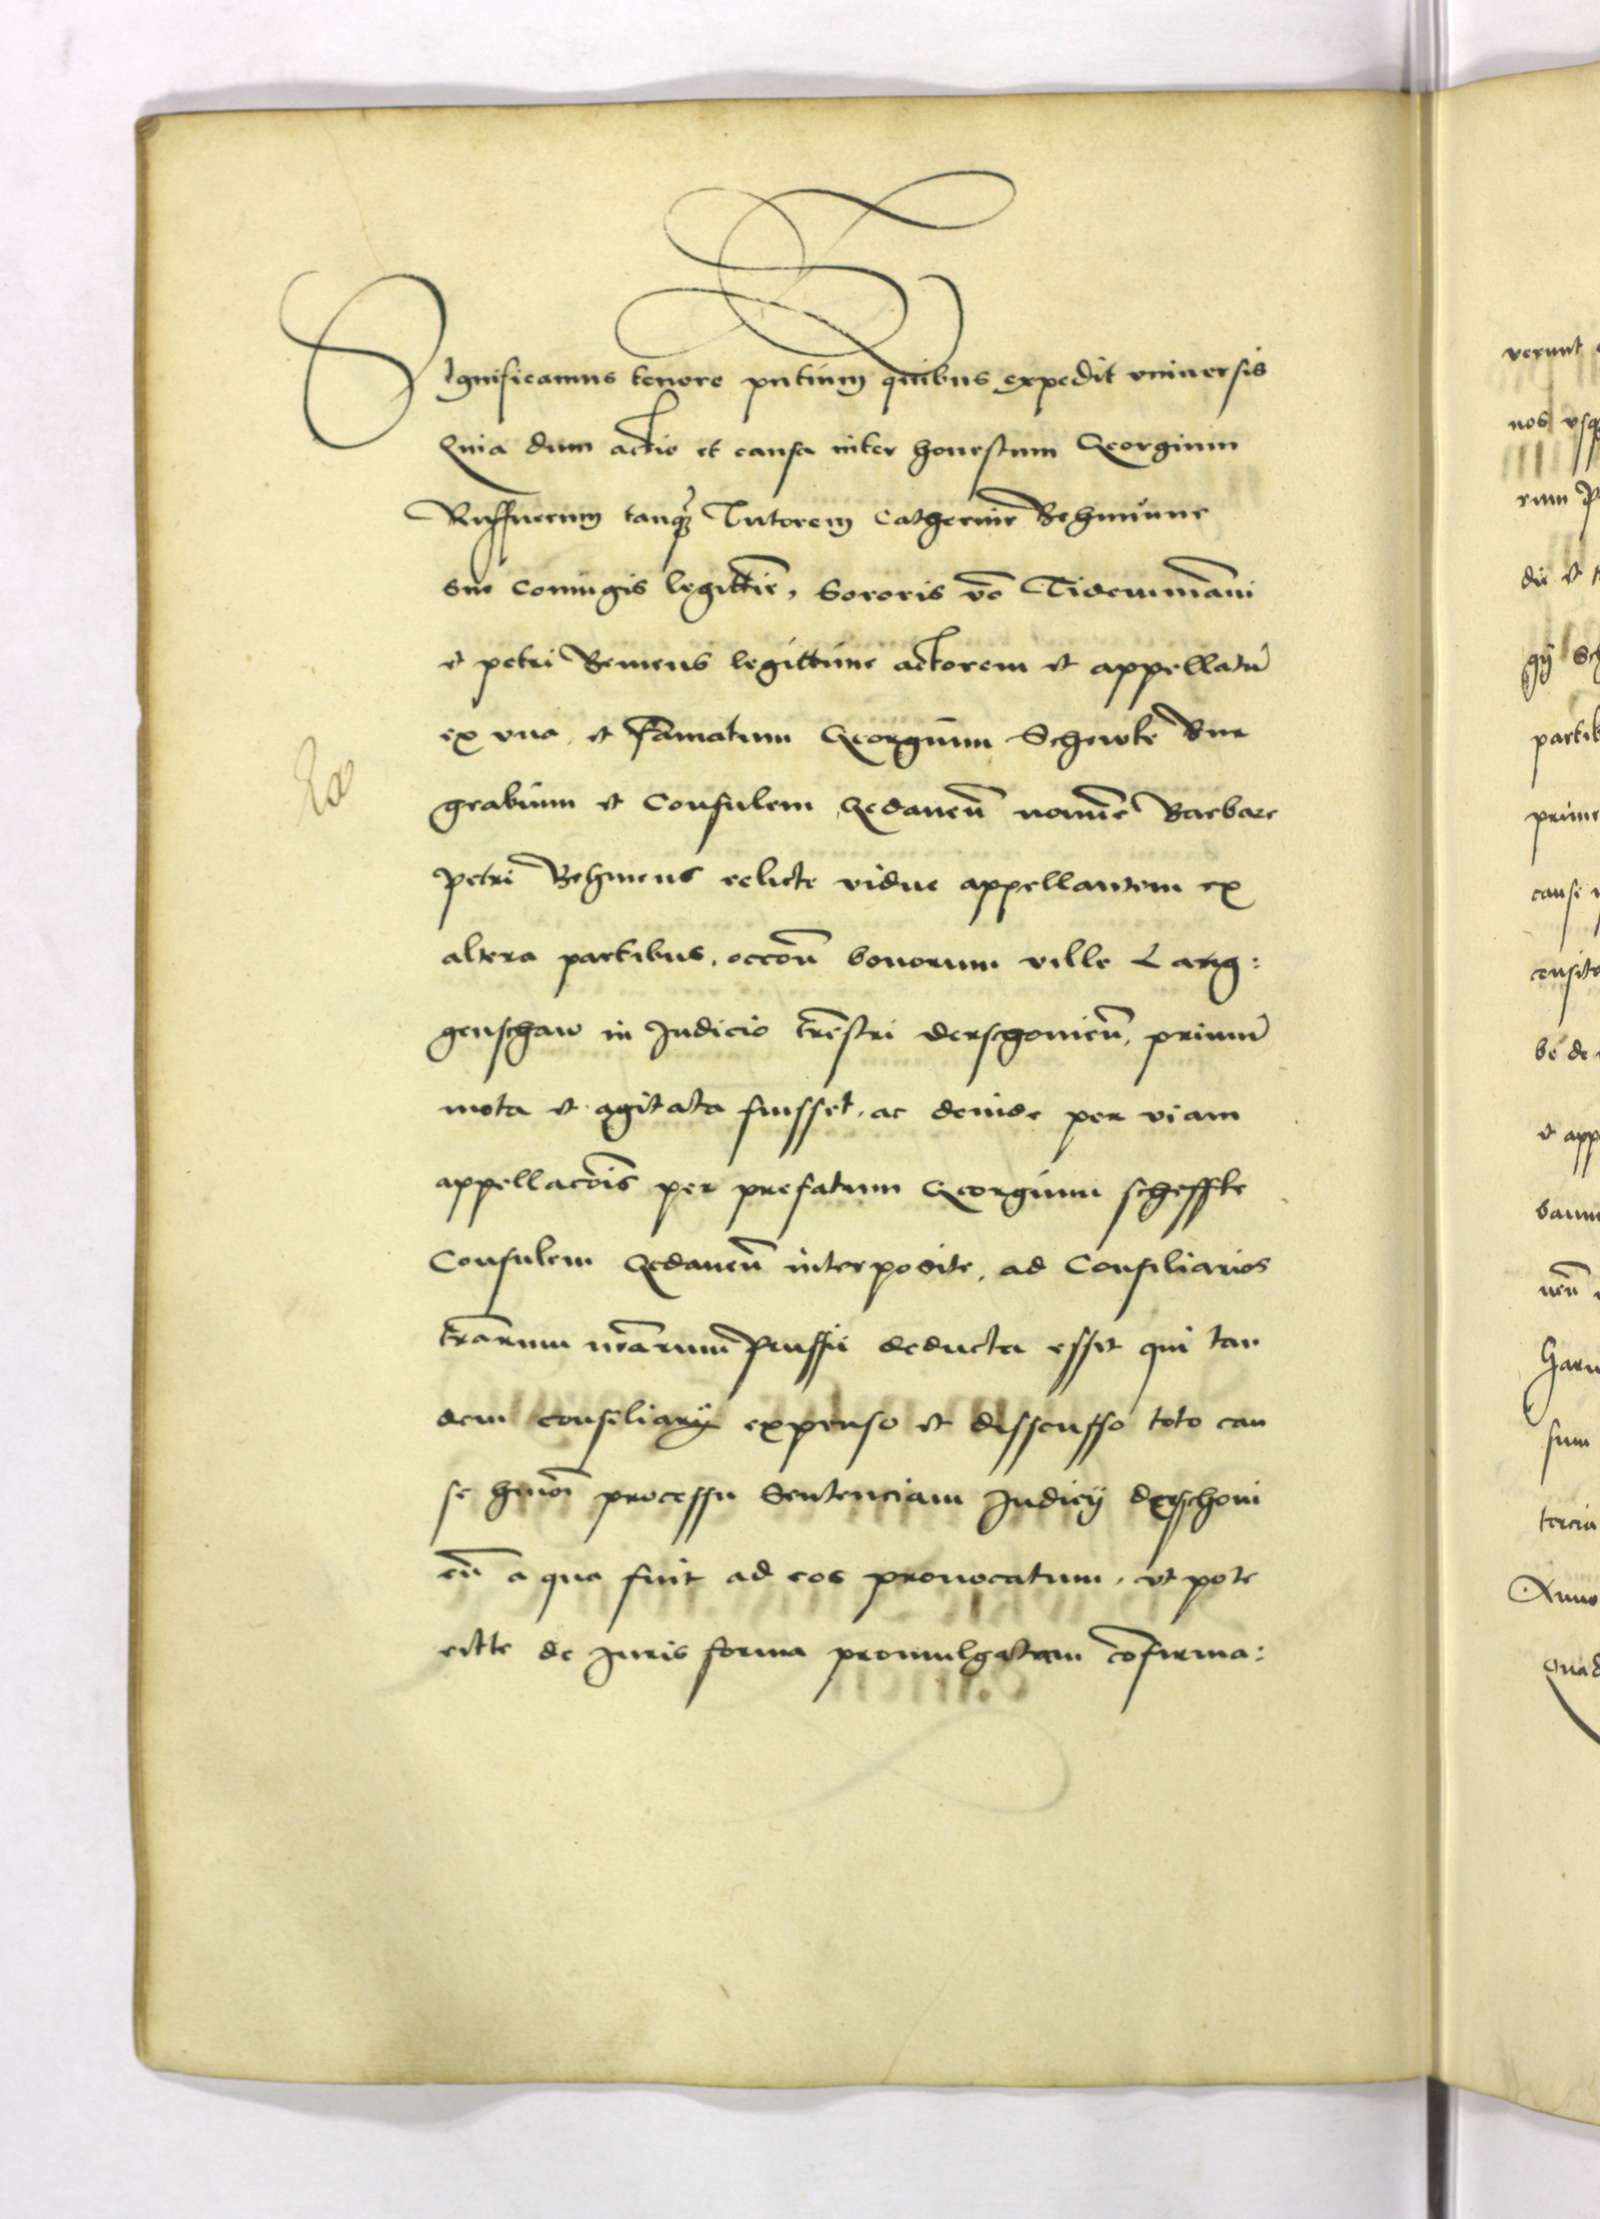 Significamus tenore pntium quibus expedit vniuersis
Quia dum actio et causa inter honestum Georgium
Ruffnerum tanq̃ Tutorem Catherine Behminne
sue Coniugis legittie, Sororis vo Tidemmanni
et petri Bemens legittime actorem et appellatu
ex vna, et famatum Georgium Schewke Bur
grabium et Consulem Gedanen nomine Barbare
petri Behmens relicte vidue appellantem ex
altera partibus, occon bonorum ville Lang:
genschaw in Judicio trestri derschouien, primum
mota et agitata fuisset, ac deinde per viam
appellacois per prefatum Georgium scheffke
Consulem Gedanen interposite, ad Consiliarios
trarum nrarum Prussie deducta esset qui tan
dem consiliarij expenso et disscusso toto cau
se hmoi processu Sententiam Judicij derschoui
en a qua fuit ad eos prouocatum, vt pote
ritte de Juris forma promulgatam cofirma:
verunt
nos vsq
rum
die et
gij Sch
partib
prime
cause
censite
be de
et app
bann
nen
harū
sum
tercia
Anno
Quad